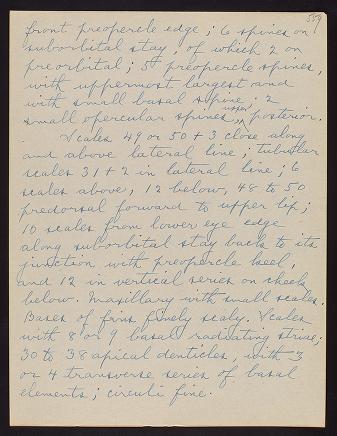 559
front preopercle edge; 6 spines on
suborbital stay, of which 2 on
preorbital; 5 preopercle spines,
with uppermost largest and
with small basal spine; 2
small opercular spines, upper posterior.
Scales 49 or 50 + 3 close along
and above lateral line; tubular
scales 31 + 2 in lateral line; 6
scales above, 12 below, 48 to 50
predorsal forward to upper lip;
10 scales from lower eye edge
along suborbital stay back to its
junction with preopercle keel,
and 12 in vertical series on cheek
below. Maxillary with small scales.
Bases of fins finely scaly. Scales
with 8 or 9 basal radiating striae;
30 to 38 apical denticles, with 3
or 4 transverse series of basal
elements; circuli fine.